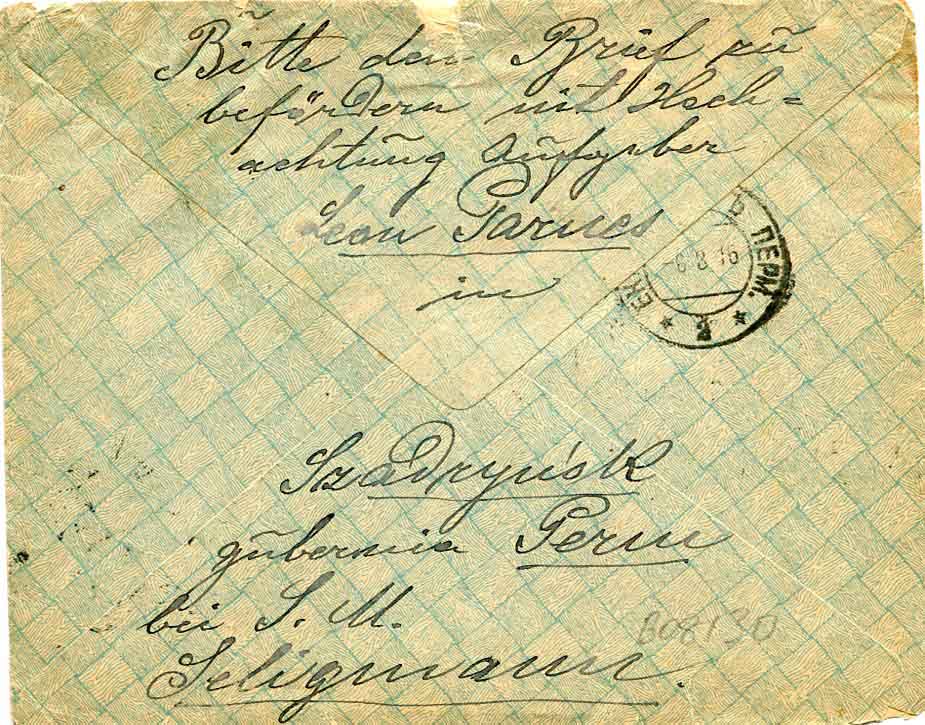 Bitte den Brief zu
befördern mit Hoch=
achtung Aufgeber
Leon Parnes
in
ПЕРМ.
-8 8 16
Szadryńsk
gubernia Perm
bei S. M.
Seligmann.
B08130